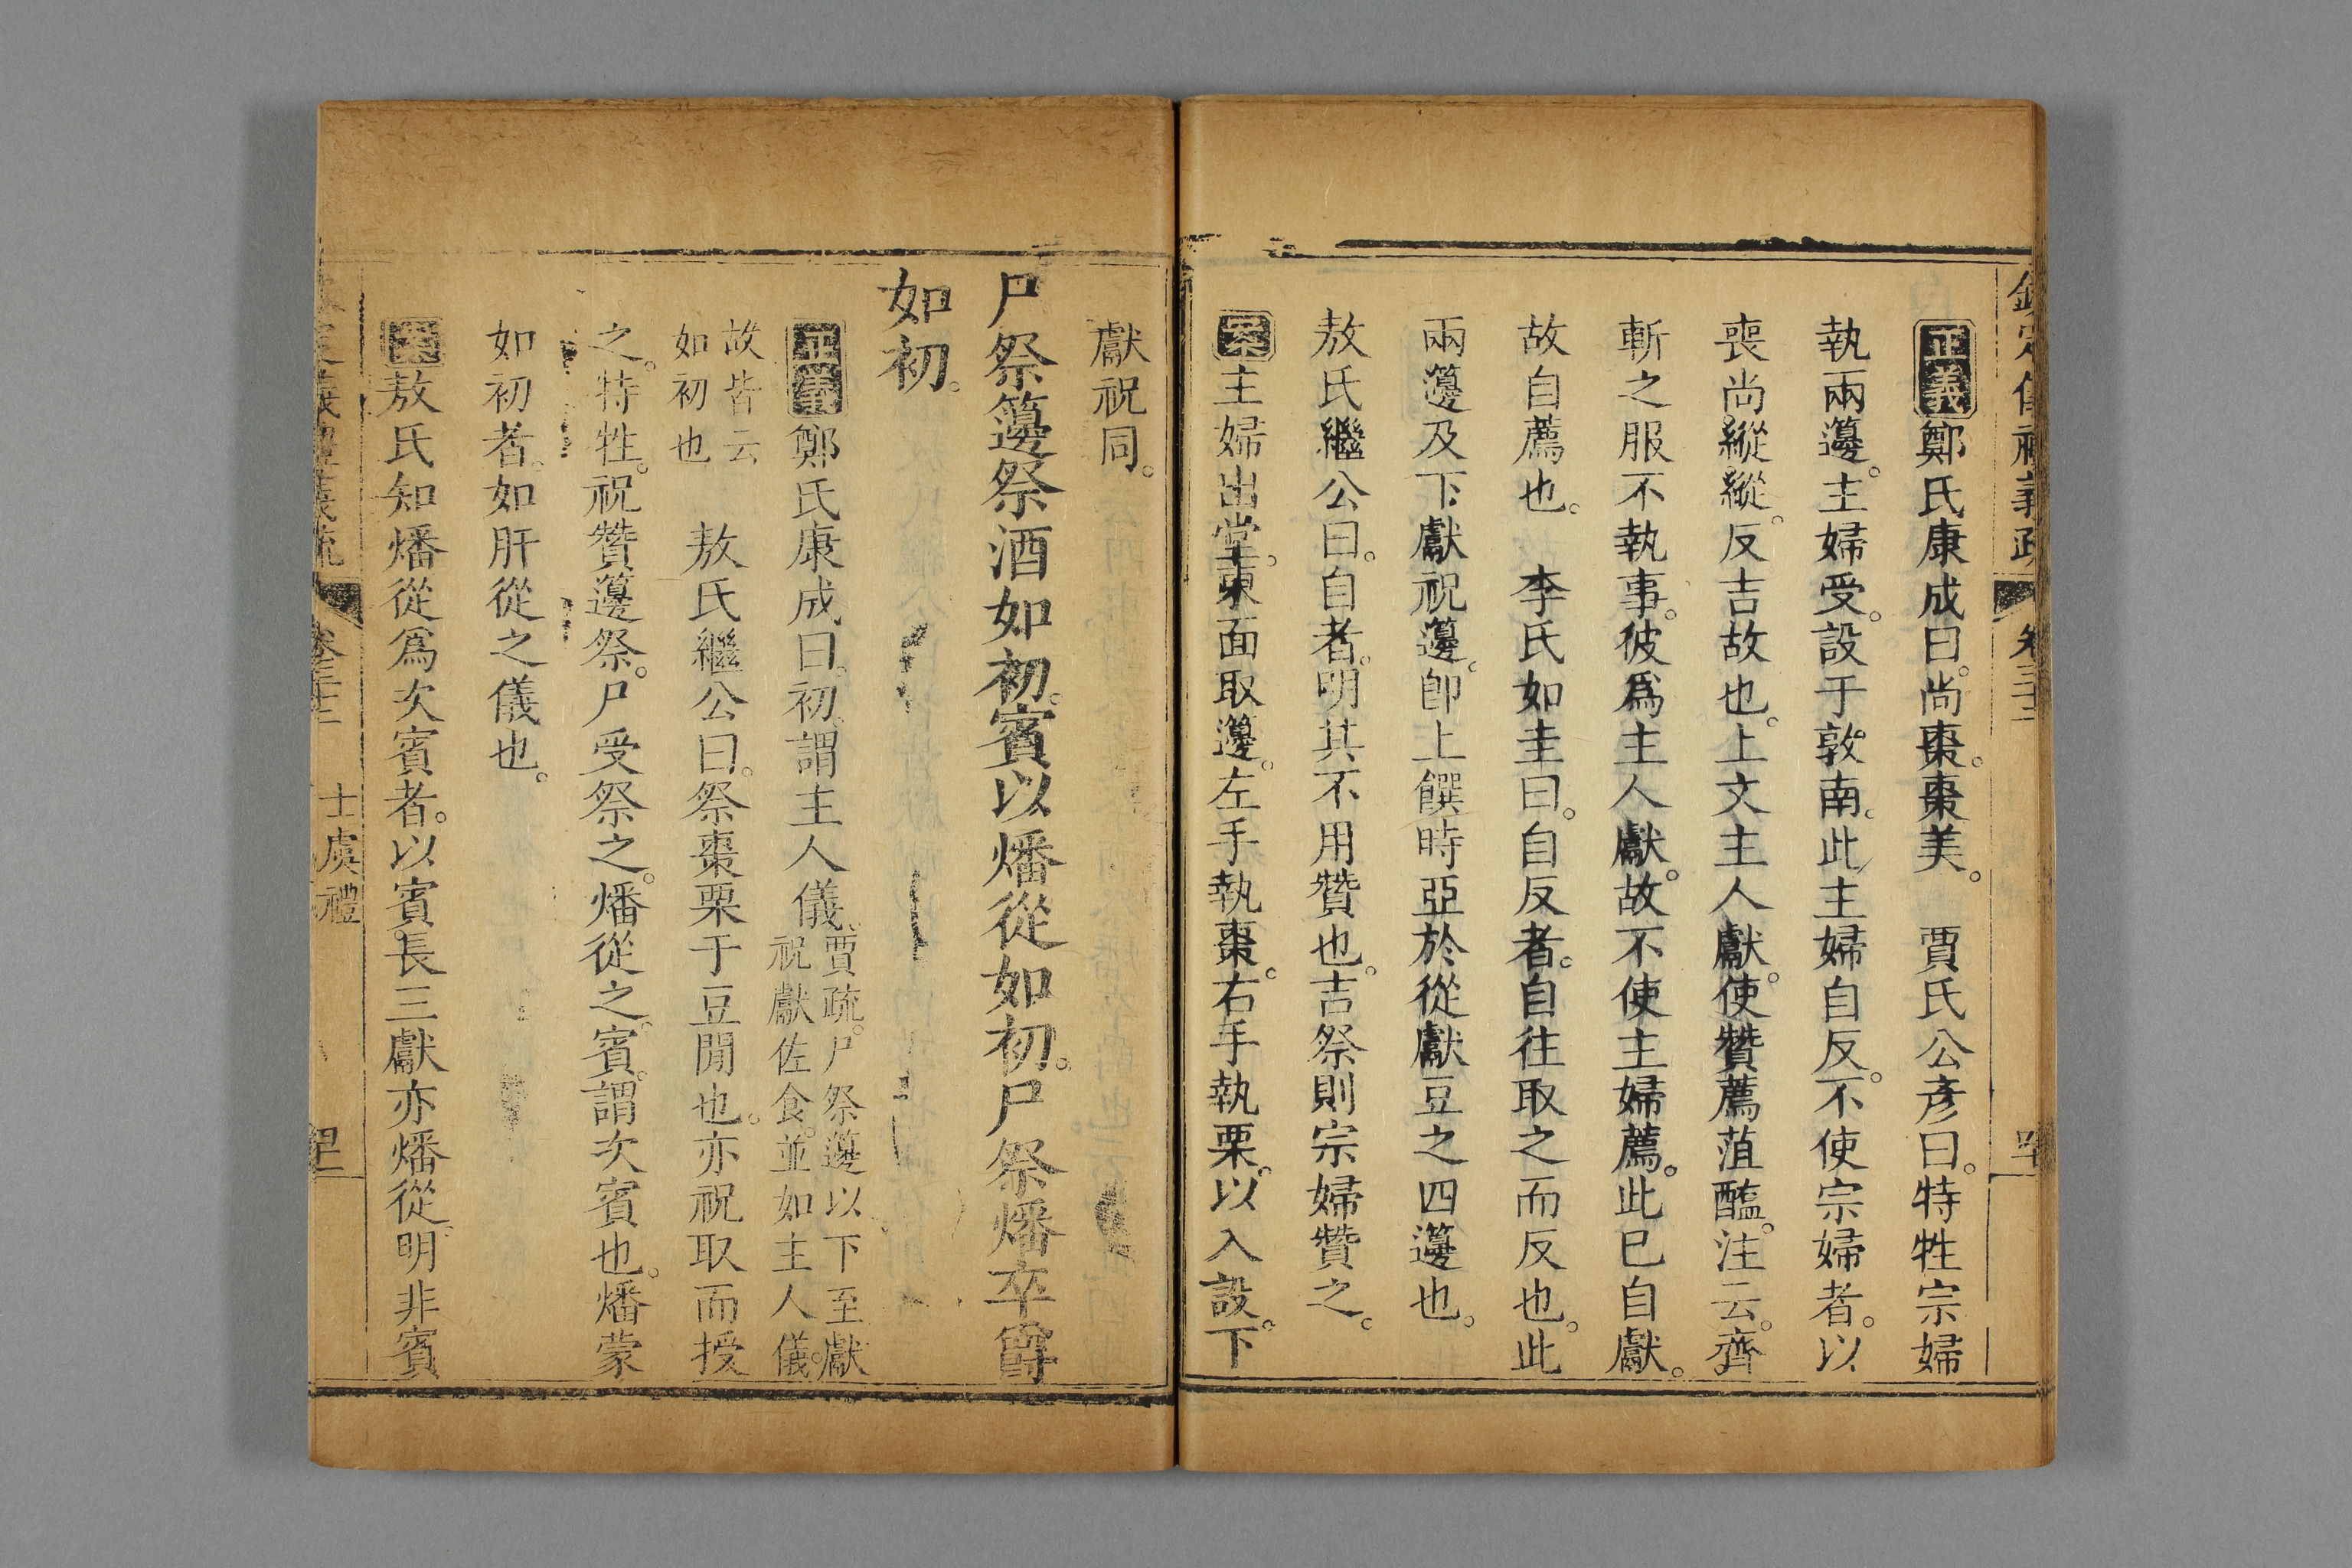 欽定儀禮義疏 卷三十三
正義鄭氏康成曰。尚棗。棗美。　賈氏公彥曰。特牲宗婦
執兩籩。主婦受。設于敦南。此主婦自反。不使宗婦者。以
喪尚縱縱。反吉故也。上文主人獻。使贊薦菹醢。注云。齊
斬之服不執事。彼爲主人獻。故不使主婦薦。此已自獻。
故自薦也。　李氏如圭曰。自反者。自往取之而反也。此
兩籩及下獻祝籩。卽上饌時亞於從獻豆之四籩也。
敖氏繼公曰。自者。明其不用贊也。吉祭則宗婦贊之。
案主婦出堂。東面取籩。左手執棗。右手執栗。以入設。下
獻祝同。
尸祭籩祭酒如初。賓以燔從如初。尸祭燔卒爵
如初。
正義鄭氏康成曰。初謂主人儀。賈疏。尸祭籩以下至獻
祝獻佐食。並如主人儀。
故皆云
如初也　敖氏繼公曰。祭棗栗于豆閒也。亦祝取而授
之。特牲。祝贊籩祭。尸受祭之。燔從之。賓。謂次賓也。燔蒙
如初者。如肝從之儀也。
案敖氏知燔從爲次賓者。以賓長三獻亦燔從。明非賓
欽定儀禮義疏 卷三十三 士虞禮